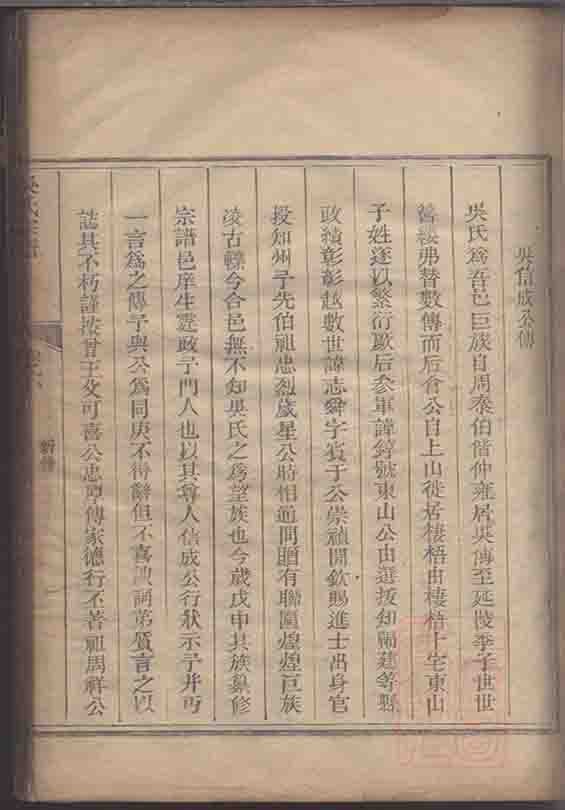 吳信成公傳
吳氏爲吾邑巨族自周泰伯偕仲雍居吳傳至延陵季子世世
簪纓弗替數傳而后倉公自上山徙居棲梧由棲梧上宅東山
子姓逐以繁衍厥后參軍諱綍號東山公由選拔知陽建等縣
政績彰彰越數世諱志舜字賓于公崇禎開欽賜進士出身官
授知州予先伯祖忠烈歲星公時相過問贈有聯匾煌煌巨族
凌古轢今合邑無不知吳氏之爲望族也今歲戊申其族纂修
宗譜邑庠生選政予門人也以其尊人信成公行狀示予并丐
一言爲之傳予與公爲同庚不得辭但不喜諛詞第質言之以
誌其不朽謹按曾王父可喜公忠厚傳家德行丕著祖周祥公